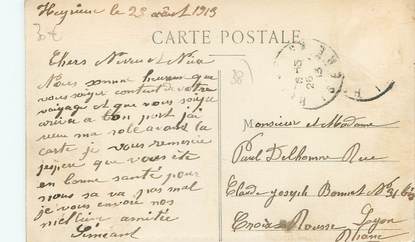 Heyrieu le 23 août 1913
30€
CARTE POSTALE
38
Chers Neveu et Niéce
Nous somme heureux que
vous soyer contents de votre
voyage et que vous soyer
arrivé a bon port j'ai
reçu ma role avant la
carte je vous remercie
j'espère que vous ête
en bonne santé pour
nous sa va pas mal
je vous envoie nos
meilleur amitiée
Monsieur et Madame
Paul Delhomme Rue
Claude Joseph Bonnet N° 31 bis
Croix Rousse Lyon
Rhone